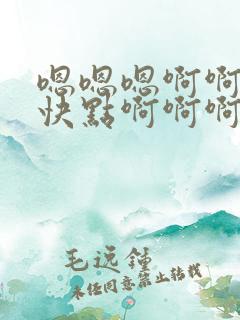 嗯嗯嗯啊啊
快點啊啊啊
毛远鍾
未经同意禁止转载